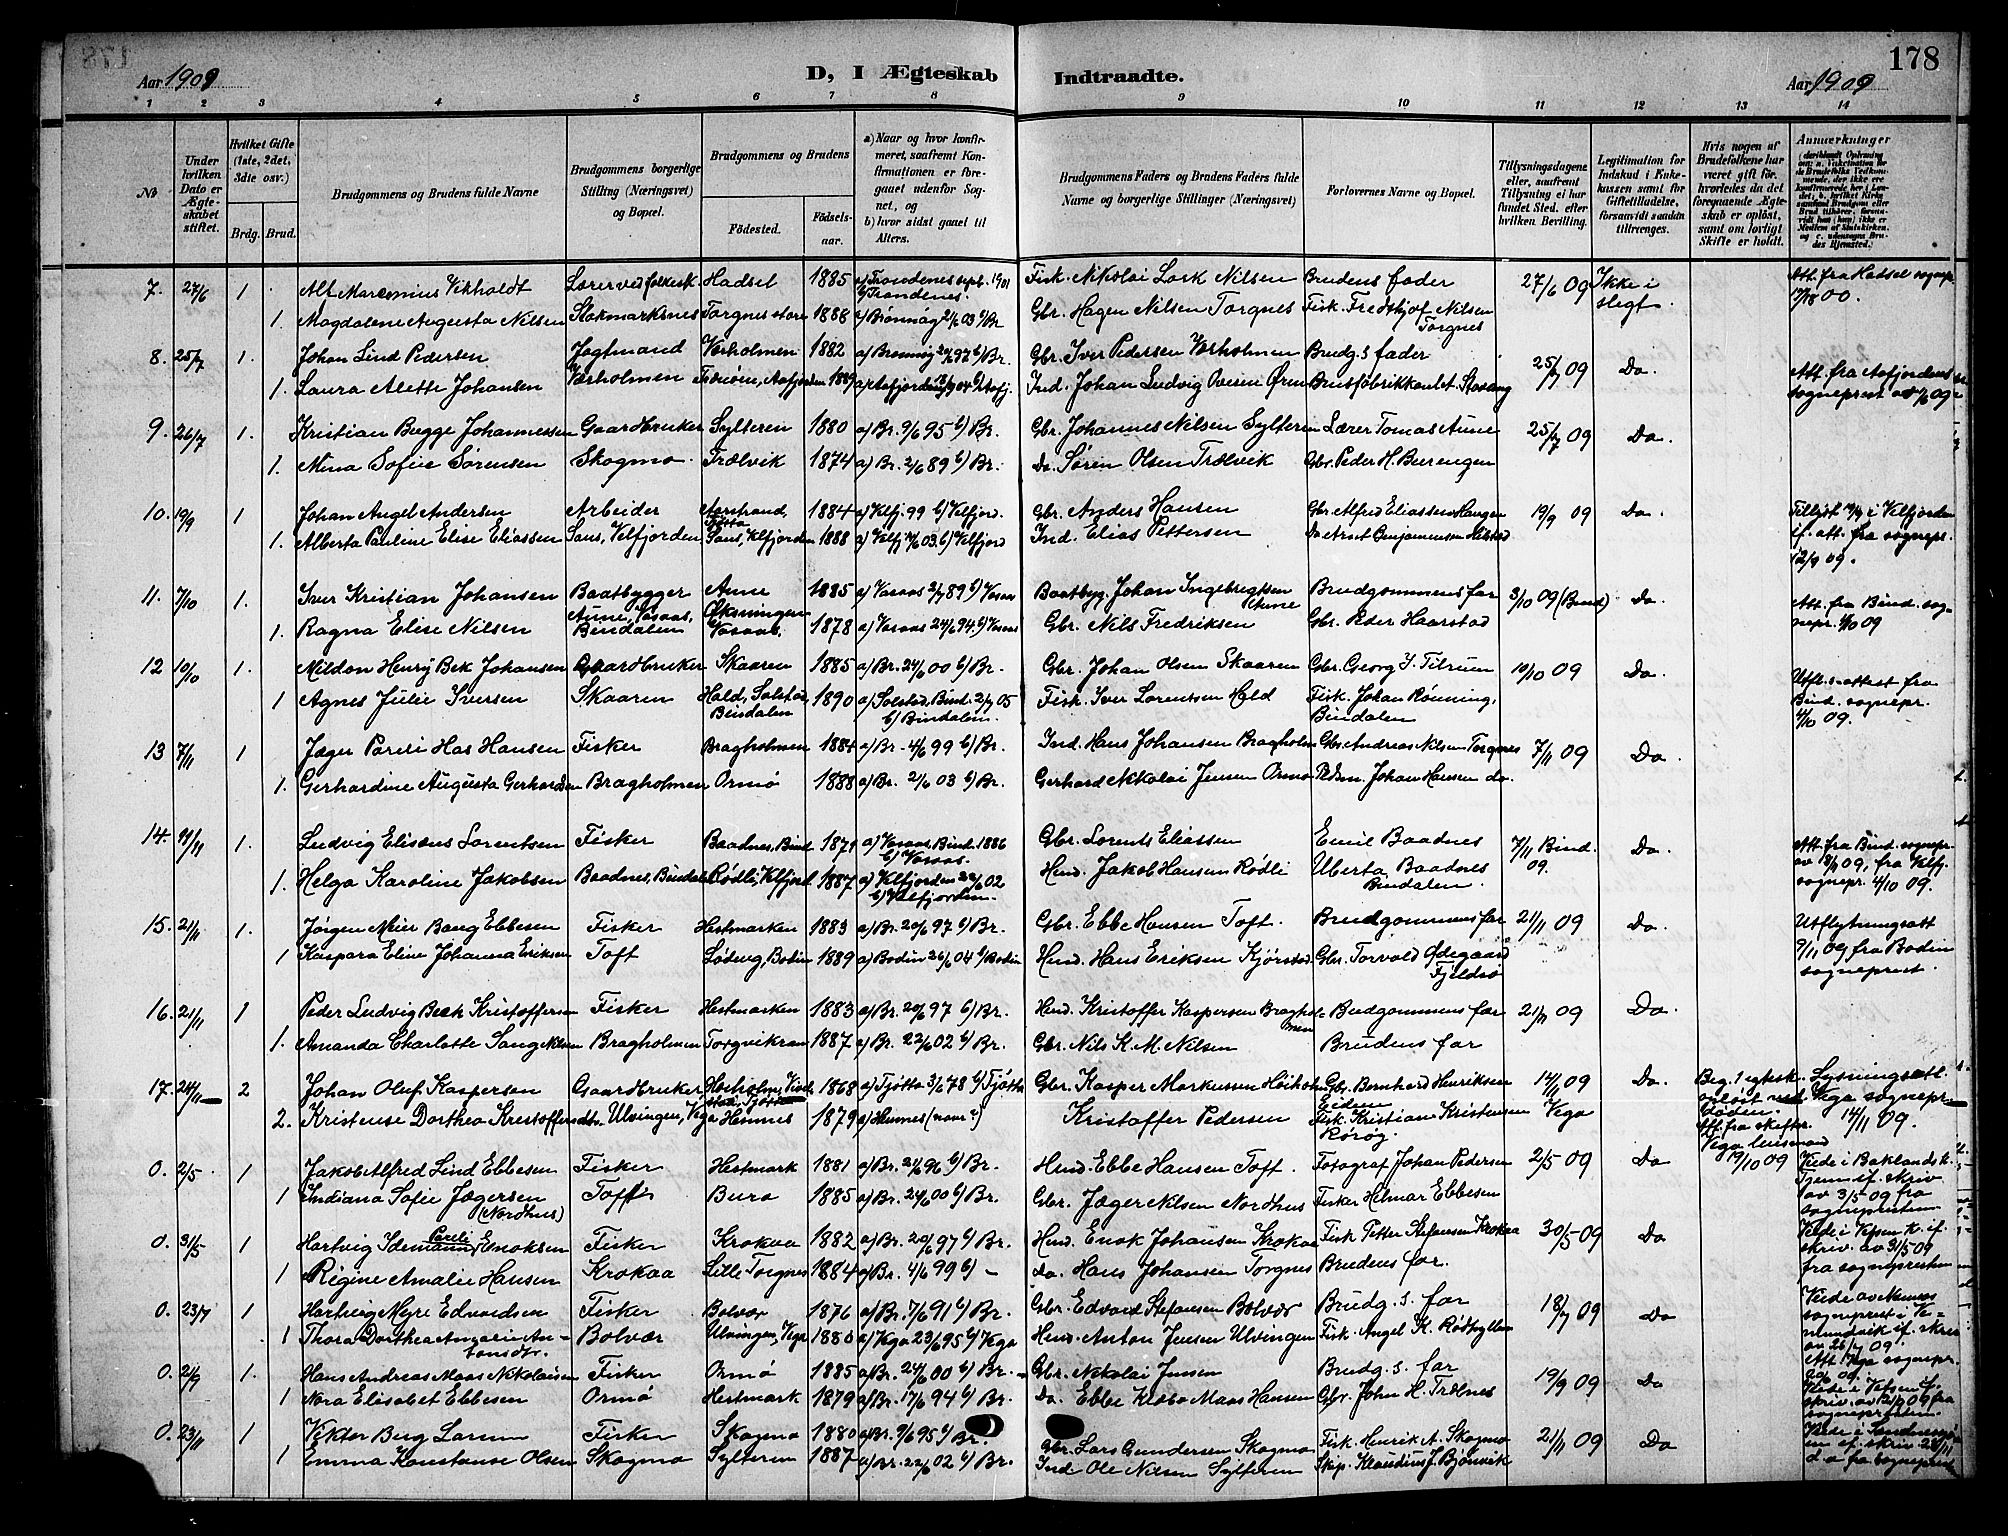 178
Aar 1909 D, I Ægteskab Indtraadte. Aar 1909
1 2 3 4 5 6 7 8 9 10 11 12 13 14
No
Under hvilken Dato er Ægteskabet stiftet.
Hvilket Gifte (1ste, 2det, 3die osv.)
Brdg. Brud.
Brudgommens og Brudens fulde Navne
Brudgommens borgerlige Stilling (Næringsvei) og Bopæl.
Brudgommens og Brudens
Fødested. Fødselsaar.
a) Naar og hvor konfirmeret, saafremt Konfirmationen er foregaaet udenfor Sognet, og
b) hvor sidst gaaet til Alters.
Brudgommens Faders og Brudens Faders fulde Navne og borgerlige Stillinger (Næringsvei)
Forlovernes Navne og Bopæl.
Tillysningsdagene eller, saafremt Tillysning ei har fundet Sted, efter hvilken Bevilling.
Legitimation for Indskud i Enkekassen samt for Giftetilladelse, forsaavidt saadan tiltrænges.
Hvis nogen af Brudefolkene har været gift før, hvorledes da det foregaaende Ægteskab er opløst, samt om lovligt Skifte er holdt.
Anmærkninger
7. 27/6 1 Alf Marconius Vikholdt Lærer ved folkesk. Hadsel 1885 a) Trondenes sept. 1901 b) Trondenes. Fisk. Nikolai Lork Nilsen Brudens fader 27/6 09 Ikke i slegt Att. fra Hadsel sognepr.
1. Magdalene Augusta Nilsen Stokmarknes Torgnes store 1888 a) Brønnøy 21/6 03 b) Br Gbr. Hagen Nilsen Torgnes Fisk. Fredthjof Nilsen Torgnes
8. 25/7 1. Johan Lind Pedersen Jogtmand Værholmen 1882 a) Brønnøy 20/6 97 b) Br. Gbr. Iver Pedersen Værholmen Brudg.s fader 25/7 09 Do.
1. Laura Alette Johansen Værholmen 1889 Ind. Johan Ludvig Ovesen Ørn Att. fra Aafjordens sogneprest
9. 26/7 1. Kristian Bugge Johannessen Gaardbruker Sylteren 1880 a) Br. 9/6 95 b) Br. Gbr. Johannes Nilsen Sylteren Lærer Tomas Aune 25/7 09 Do.
1. Mina Sofie Sørensen Skogmo. Trælvik 1874 a) Br. 2/6 89 b) Br. Do. Søren Olsen Trælvik Gbr. Peder H. Beerengen
10. 19/9 1 Johan Angel Andersen Arbeider Aarstrand, Tjøtta 1884 a) Velfj. 99 b) Velfjord. Gbr. Anders Hansen Gbr. Alfred Eliassen Haugen 19/9 09 Do. Tillyst i Velfjorden if. att. fra sognepr. 12/9 09.
1. Alberta Pauline Elise Eliassen Saus, Velfjorden Saus, Velfjorden 1888 a) Velfj 03. b) Velfjord Ind. Elias Pettersen Do Arnt Benjaminsen Hilstad
11. 7/10 1. Iver Kristian Johansen Baatbygger Aune 1885 a) Vasaas b) Vasaas Baatbyg. Johan Ingebrigtsen Aune Brudgommens far 3/10 09 (Bind) Do. Att. fra Bind. sognepr. 4/10 09
1. Ragna Elise Nilsen Aune, Vasaas, Bindalen Vasaas. 1878 a) Vasaas 24/6 94. b) Vasaas Gbr. Nils Fredriksen Gbr. Peder Haarstad
12 10/10 1. Mildon Henry Bek Johansen Gaardbruker Skaaren 1885 a) Br. 24/6 00 b) Br. Gbr. Johan Olsen Skaaren Gbr. Georg I. Tilrum 10/10 09 Do. Utfl.s-attest fra Bind. sognepr. 4/10 09.
1 Agnes Julie Iversen Skaaren Hald, Solstad, Bindalen 1890 a) Solstad, Bind. 2/7 05 b) Bindalen. Fisk. Iver Lorentsen Hald Fisk. Johan Rønning, Bindalen
13 7/11 1 Jæger Pareli Has Hansen Fisker Bragholmen 1884 a) Br. 4/6 99 b) Br. Ind. Hans Johansen Bragholm Gbr. Andreas Nilsen Torgnes 7/11 09 Do.
1. Gerhardine Augusta Gerhardsen Bragholmen Ormø 1888 a) Br. 21/6 03 b) Br. Gerhard Nikolai Jensen Ormø Pedsm. Johan Hansen do.
14. 11/11 1. Ludvig Eliseus Lorentsen Fisker Baadnes, Bind 1871 a) Vasaas, Bind. 1886 b) Vasaas. Gbr. Lorents Eliassen Emil Baadnes 7/11 Bind. 09. Do. Att. fra Bind. sognepr. av 09, fra Velfj. sognepr. 4/10 09.
1. Helga Karoline Jakobsen Baadnes, Bindalen Rødli, Velfjord 1887 a) Velfjorden 22/6 02 b) Velfjorden. Husm. Jakob Hansen Rødli Uberta Baadnes Bindalen
15. 21/11 1. Jørgen Meier Bang Ebbesen Fisker Hestmarken 1883 a) Br. 20/6 97 b) Br. Gbr. Ebbe Hansen Toft. Brudgommens far 21/11 09 Do. Utflytningsatt 9/11 09 fra Bodin sogneprest.
1 Kaspara Eline Johanna Eriksen Toft Løding, Bodin 1889 a) Bodin 26/6 04 b) Bodin Husm. Hans Eriksen Kjørstad Gbr. Torvald Ødegaard Fjeldsø
16. 21/11 1 Peder Ludvig Beck Kristoffersen Fisker Hestmarken 1883 a) Br. 20/6 97 b) Br. Husm. Kristoffer Kaspersen Bragholmen Brudgommens far 21/11 09 Do.
1. Amanda Charlotte Sang Nilsen Bragholmen Torgvikran 1887 a) Br. 22/6 02 b) Br. Gbr. Nils K. M. Nilsen Brudens far
17. 24/11 2 Johan Oluf Kaspersen Gaardbruker 1868 a) Tjøtta b) Tjøtta Gbr. Kasper Markussen Høiholm Gbr. Bernhard Henriksen Eidem 14/11 09 Do. Beg. 1 egtesk. opløst ved døden. Att. fra skifter. Vega lensmand 19/10 09 Lysningsatt. Vega sognepr. 14/11 09.
2. Kristense Dorthea Kristoffersdtr. Ulvingen, Vega Hemnes 1879 a) Hemnes (naar?) Kristoffer Pedersen Fisk. Kristian Kristensen Rørøy. Vega
0. 2/5 1 Jakob Alfred Lind Ebbesen Fisker Hestmark 1881 a) Br. 21/6 96 b) Br. Husm. Ebbe Hansen Toft. Fotograf Johan Pedersen 2/5 09 Do Viede i Baklandsk. Tjem if. skriv av 3/5 09 fra sognepresten
1 Indiana Sofie Jægersen (Nordhus) Toft Burø 1885 a) Br. 24/6 00 b) Br. Gbr. Jæger Nilsen Nordhus Fisker Hilmar Ebbesen
0. 31/5 1 Hartvig Idermann Pareli Enoksen Fisker Krokaa 1882 a) Br. 20/6 97 b) Br. Husm. Enok Johansen Krokaa Fisk. Petter Stefansen Krokaa 30/5 09 Do Viede i Vefsen k. if. skriv. av 31/5 09 fra sognepresten
1 Regine Amalie Hansen Krokaa Lille Torgnes 1884 a) Br. 4/6 99 b) – Do. Hans Johansen Torgnes Brudens far.
0. 23/7 1 Hartvig Meyer Edvardsen Fisker Bolvær 1876 a) Br. 7/6 91 b) Br. Gbr. Edvard Stefansen Bolvær Brudg.s. far 18/7 09 Do
1 Thora Dorthea Amalie Antonsdtr. Bolvær Ulvingen, Vega 1880 a) Vega 23/6 95 b) Vega Husm. Anton Jensen Ulvingen Fisk. Angel K. Rødhyllen Att. Vega sognepr.
0. 21/9 1. Hans Andreas Maas Nikolaisen Fisker Ormø 1885 a) Br. 24/6 00 b) Br. Gbr. Nikolai Jensen Brudg.s. far 19/9 09 Do
1 Nora Elisabet Ebbesen Ormø Hestmark 1879 a) Br. 17/6 94 b) Br. Do. Ebbe Klabo Maas Hansen Gbr. John H. Trælnes
0. 23/11 1 Viktor Berg Larsen Fisker Skogmo 1880 a) Br. 9/6 95 b) Br. Gbr. Lars Gundersen Skogmo Fisk. Henrik A. Skogmo 21/11 09 Do
1 Emma Konstanse Olsen Skogmo Sylteren 1887 a) Br. 22/6 02 b) Br. Ind Ole Nilsen Sylteren Skip. Klaudius J. Bjørnvik